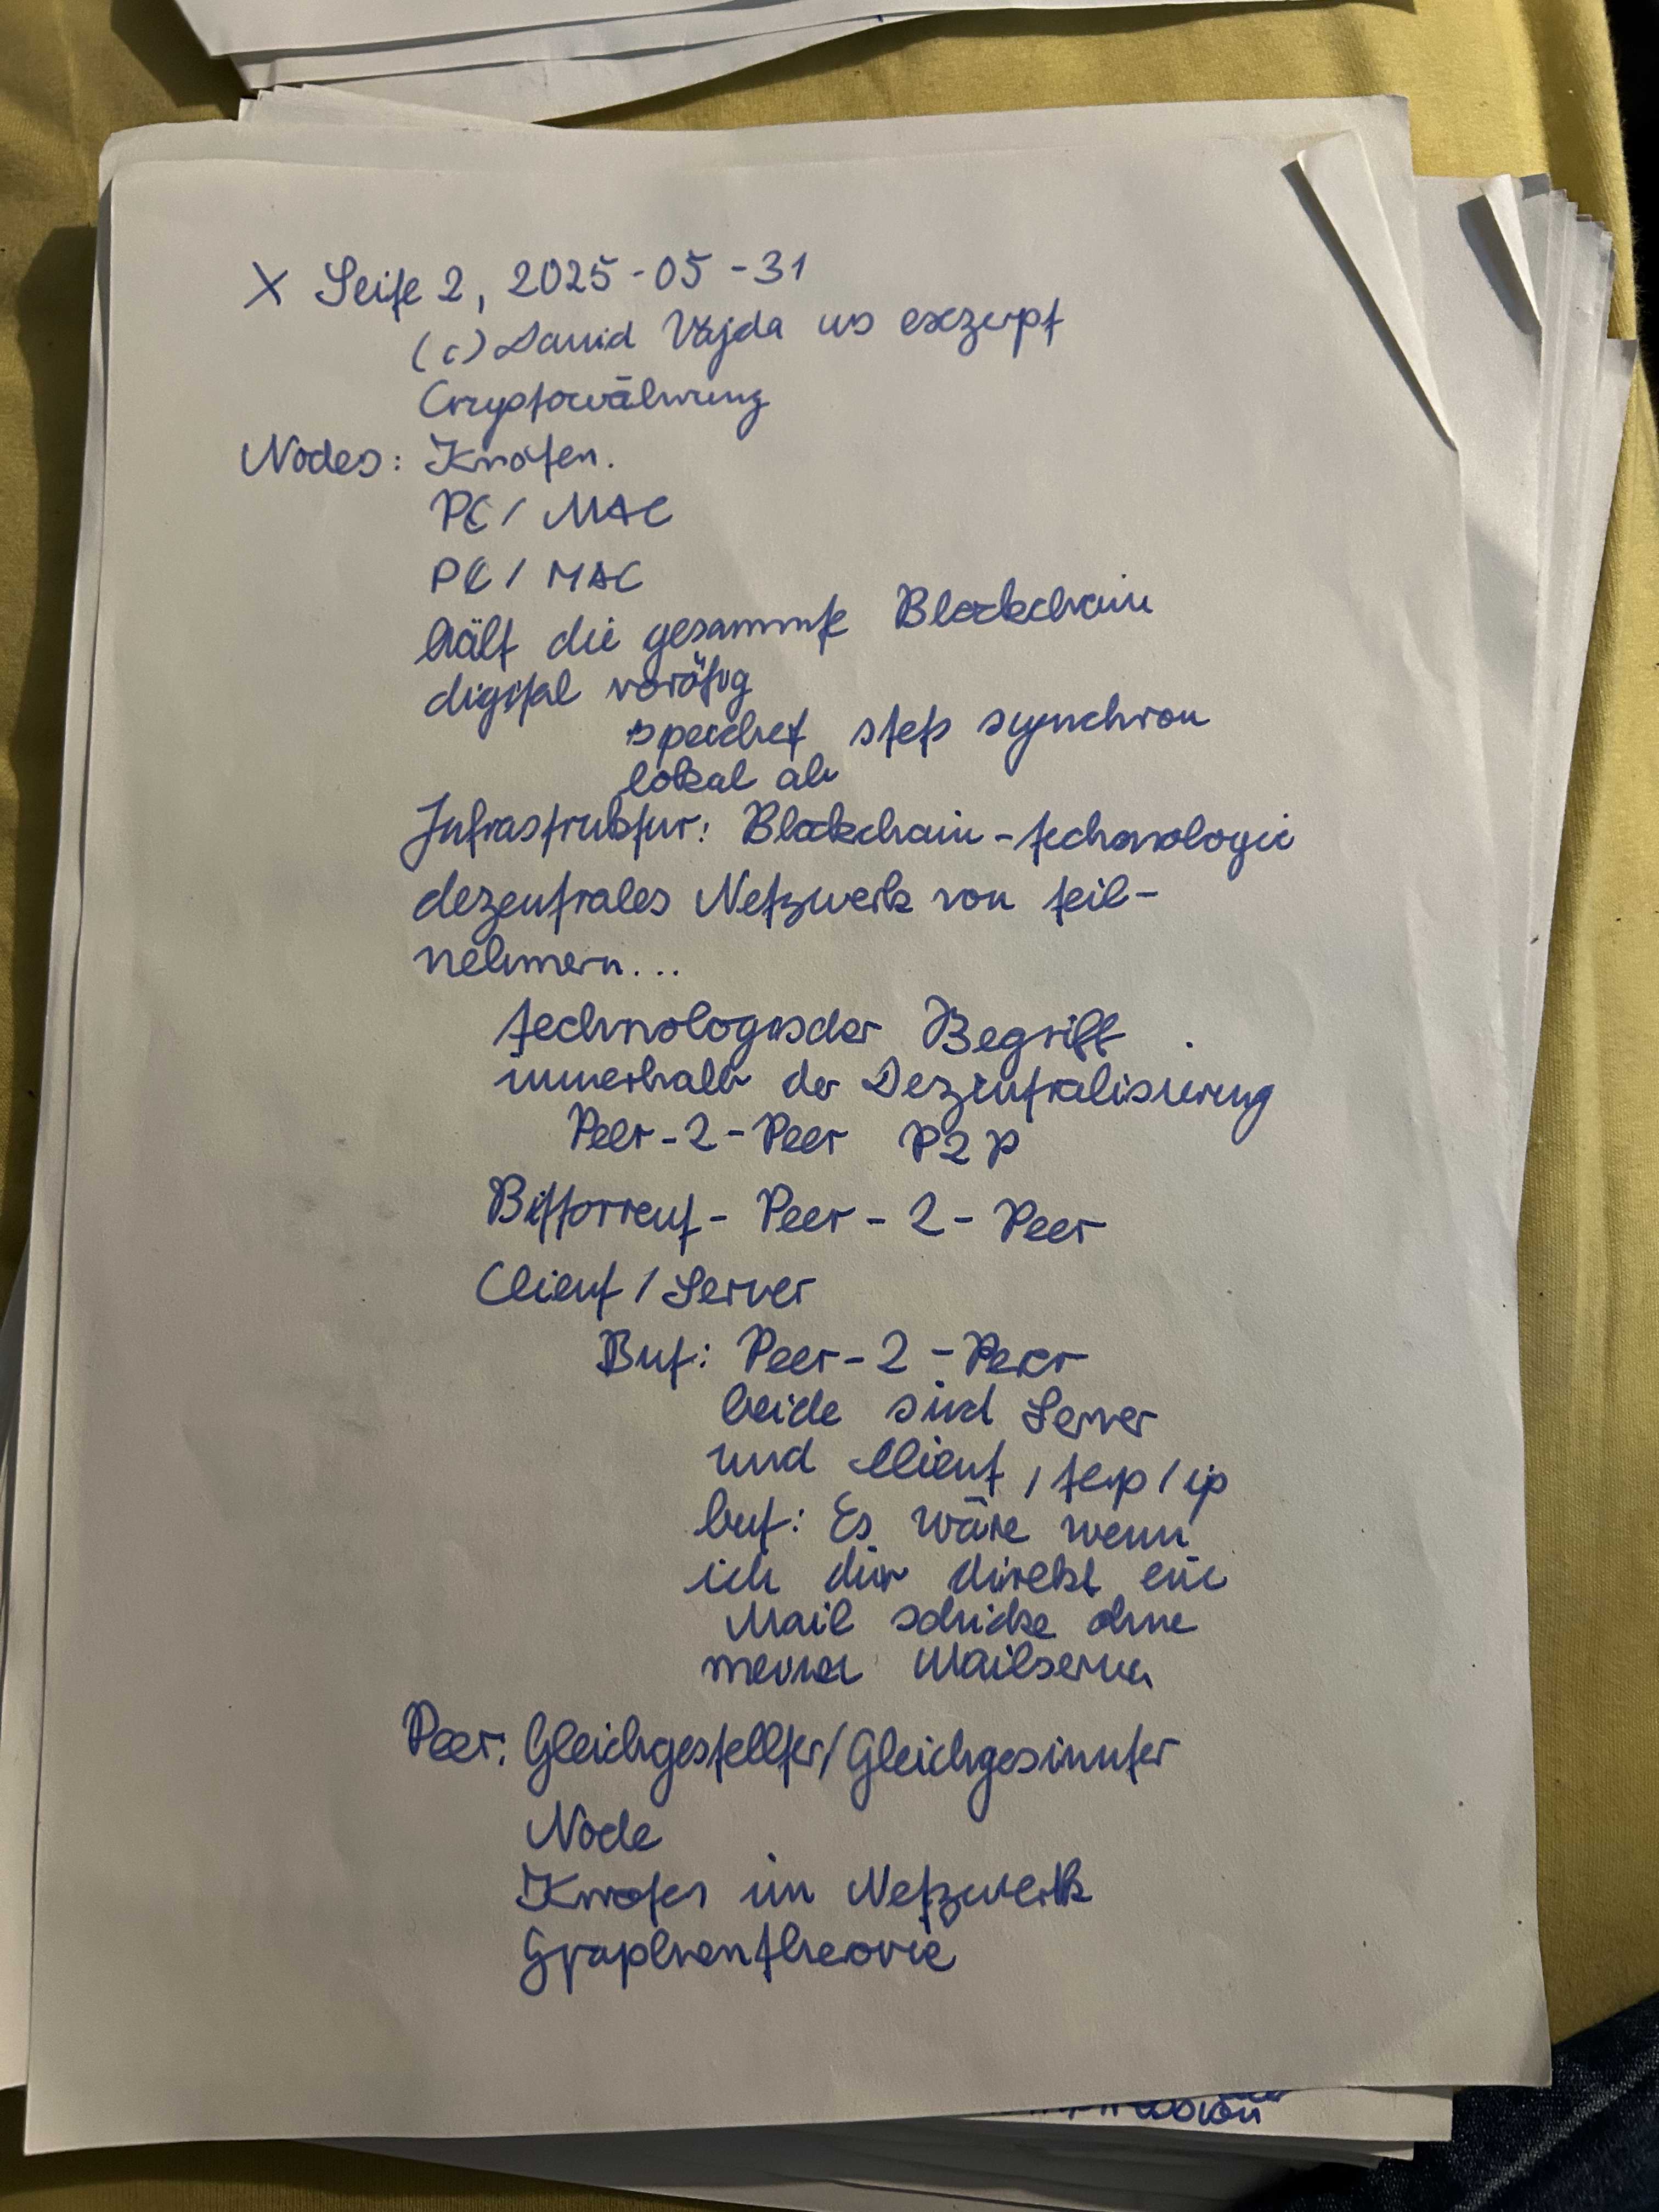 X Seite 2, 2025-05-31
(c) David Vajda us exzerpt
Cryptowährung
Nodes: Knoten.
PC / MAC
PC / MAC
hält die gesammte Blockchain
digital vorätig
speichet stets synchron
lokal ab
Infrastruktur: Blockchain-technologie
dezentrales Netzwerk von teil-
nehmern...
technologischer Begriff
innerhalb der Dezentralisierung
Peer-2-Peer P2P
Bittorrent - Peer-2-Peer
Client / Server
But: Peer-2-Peer
beide sind Server
und Client, tcp/ip
but: Es wäre wenn
ich dir direkt eine
Mail schicke ohne
meinen Mailserver
Peer: Gleichgestellter/Gleichgesinnter
Node
Knoten im Netzwerk
Graphentheorie